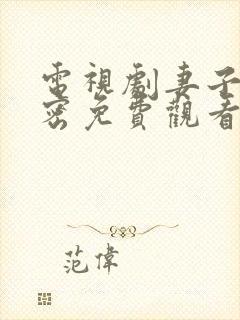 電視劇妻子
密免費觀看
范偉